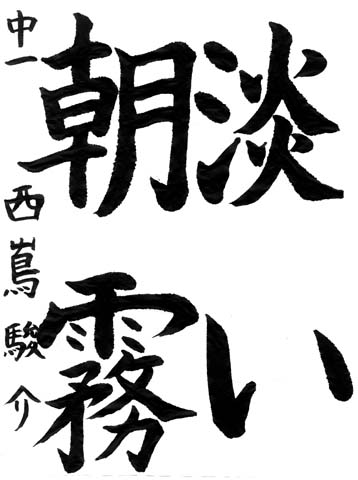 淡い
朝霧
中一 西嶌駿介